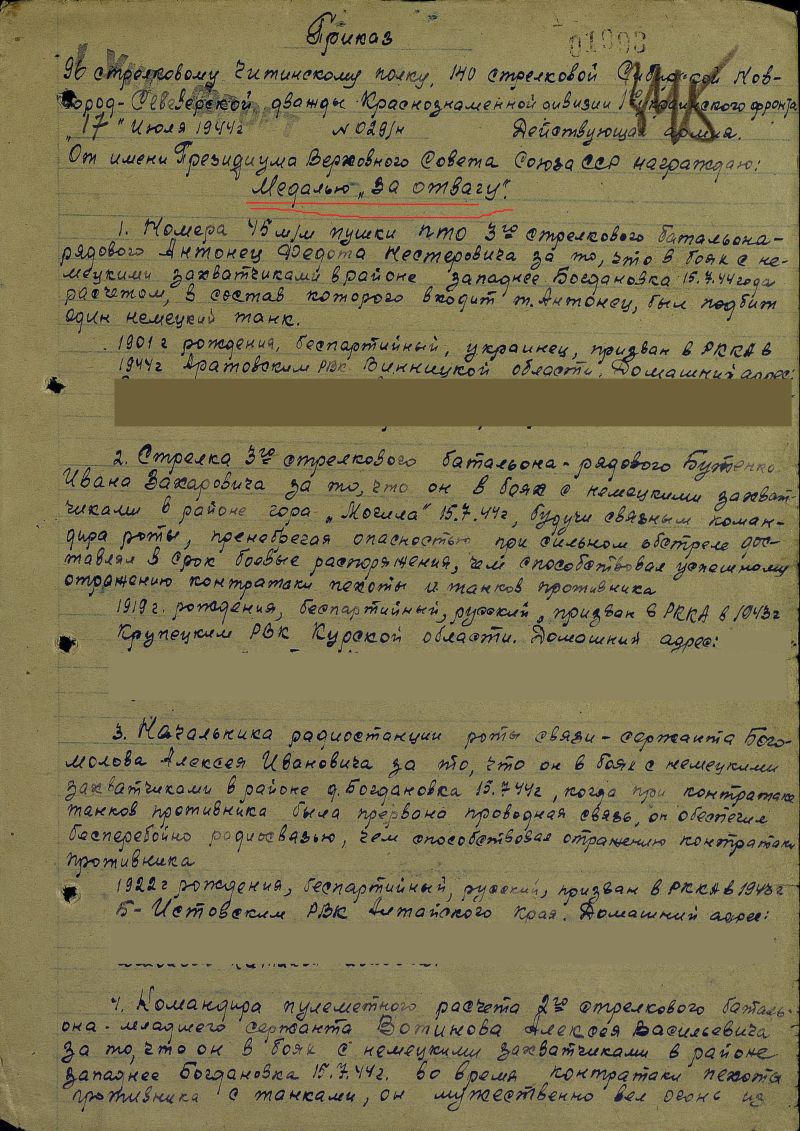 Приказ
01993
96 стрелковому Читинскому полку, 140 стрелковой Сибирской Нов-
город-Северской дважды Краснознаменной дивизии 1го Украинского фронта
"17" Июля 1944г N 029/н Действующая армия.
От имени Президиума Верховного Совета Союза ССР награждаю:
Медалью „За отвагу".
1. Номера 45 м/м пушки ПТО 3го стрелкового батальона-
рядового Антонец Федота Нестеровича за то, что в боях с не-
мецкими захватчиками в районе западнее Богдановка 15.7.44 года
расчетом, в состав которого входит т. Антонец, был подбит
один немецкий танк.
1901 г рождения, беспартийный, украинец, призван в РККА в
1944г РВК Винницкой области. Домашний адрес:
2. Стрелка 3го стрелкового батальона - рядового Бутенко
Ивана Захаровича за то, что он в боях с немецкими захват-
чиками в районе гора „Могила" 15.7.44г, будучи связным коман-
дира роты, пренебрегая опасностью при сильном обстреле дос-
тавлял в срок боевые распоряжения, чем способствовал успешному
отражению контратаки пехоты и танков противника
1919 г. рождения, беспартийный, русский, призван в РККА в 1943г
Крупецким РВК Курской области. Домашний адрес:
3. Начальника радиостанции роты связи - сержанта Бого-
молова Алексея Ивановича за то, что он в боях с немецкими
захватчиками в районе д. Богдановка 15.7.44г, когда при контратаке
танков противника была прервана проводная связь, он обеспечил
бесперебойно радиосвязью, чем способствовал отражению контратаки
противника
1922 г рождения, беспартийный, русский, призван в РККА в 1943г
Б-Истовским РВК Алтайского края. Домашний адрес:
4. Командира пулеметного расчета 2го стрелкового баталь-
она - младшего сержанта Вотинова Алексея Васильевича
за то, что он в боях с немецкими захватчиками в районе
западнее Богдановка 15.7.44г. во время контратаки пехоты
противника с танками, он мужественно вел огонь из